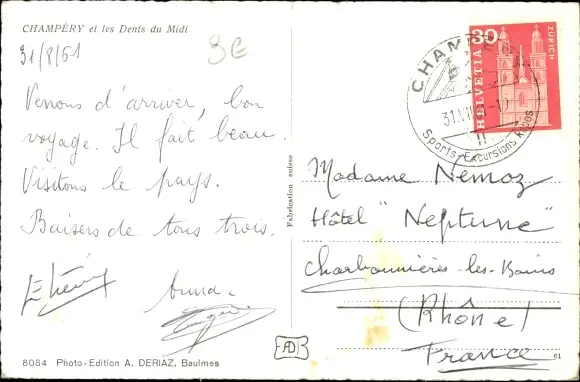 CHAMPÉRY et les Dents du Midi
31/8/61
3€
Venons d'arriver, bon
voyage. Il fait beau.
Visitons le pays.
Baisers de tous trois.
Anna
8084 Photo-Edition A. DERIAZ, Baulmes
Fabrication suisse
AD
CHAMP
Sports-Excursions Repos
30
HELVETIA
ZÜRICH
Madame Nemoz
Hôtel "Neptune"
Charbonnières-les-Bains
(Rhône)
France